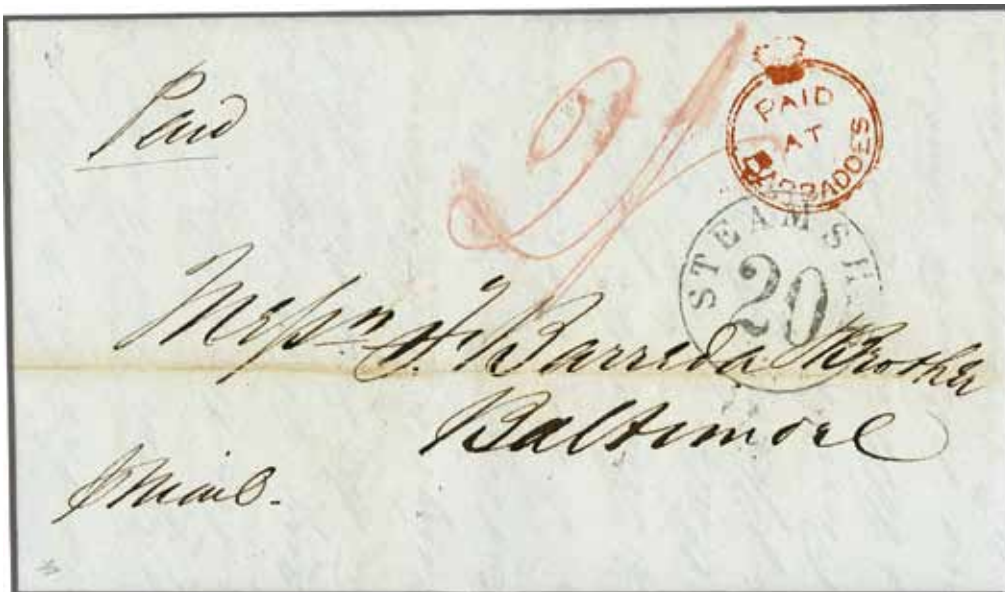 Paid
PAID
AT
BARBADOES
STEAMSH
20
Messrs F. Barreda & Brother
Baltimore